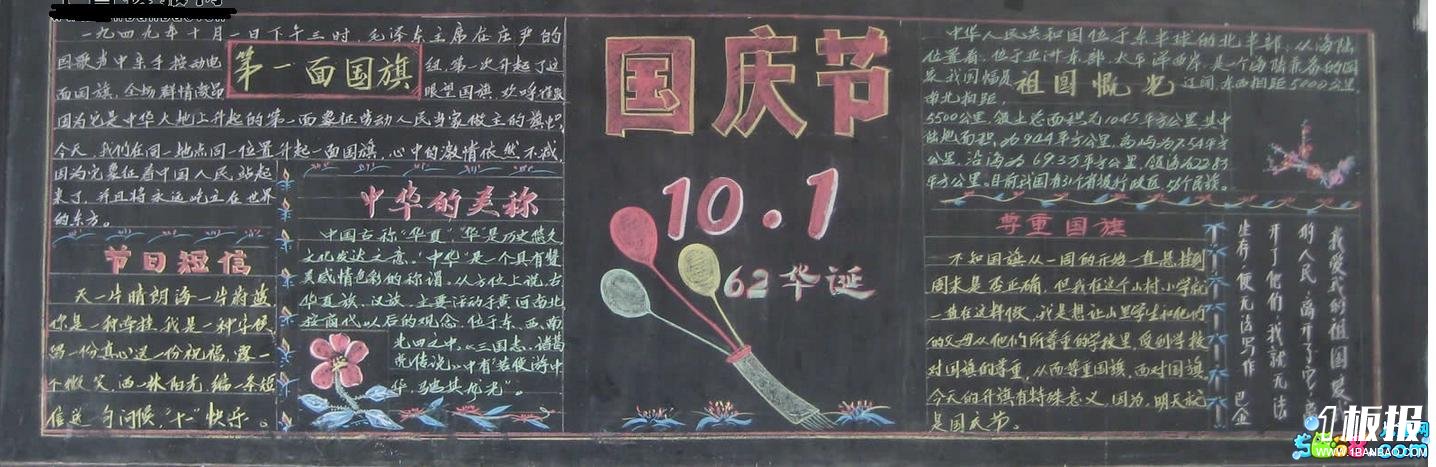 一九四九年十月一日下午三时，毛泽东主席在庄严的
国歌声中亲手按动电
组，第一次升起了这
面国旗，全场群情激昂
眼望国旗，欢呼
第一面国旗
因为它是中华大地上升起的第一面象征劳动人民当家做主的旗帜，
今天，我们在同一地点同一位置升起一面国旗，心中的激情依然不减，
因为它象征着中国人民站起
来了，并且将永远屹立在世界
的东方。
节日短信
天一片晴朗海一片蔚蓝
你是一种牵挂，我是一种守候
留一份真心送一份祝福，露一
个微笑洒一抹阳光，编一条短
信送一句问候，“十一”快乐。
中华的美称
中国古称“华夏”，“华”是历史悠久
文化发达之意，“中华”是一个具有赞
美感情色彩的称谓，从方位上说，古
华夏族、汉族，主要活动于黄河南北
按商代以后的观念，位于东、西、南
北四之中，《三国志、诸葛
亮传说》中有“若使游中
华，骋其龙光”。
国庆节
10.1
62华诞
中华人民共和国位于东半球的北半部，从海陆
位置看，位于亚洲东部，太平洋西岸，是个海陆兼备的国
家，我国幅员
祖国概况
辽阔，东西相距5000公里，
南北相距
5500公里，领土总面积为1045万平方公里，其中
陆地面积，为
公里，沿海为
平方公里。目前我国有31个省级行政区，56个民族。
尊重国旗
不知国旗从一周的开始一直悬挂到
周末是否正确，但我在这个山村小学就
一直在这样做，我是想让山里学生和他们
的父母从他们所尊重的学校里，受到学校
对国旗的尊重，从而尊重国旗，面对国旗，
今天的升旗有特殊意义，因为，明天就
是国庆节。
我爱我的祖国，爱我
的人民，离开了它，离
开了他们，我就无法
生存，便无法写作 巴金
1板报
WWW.1BANBAO.COM